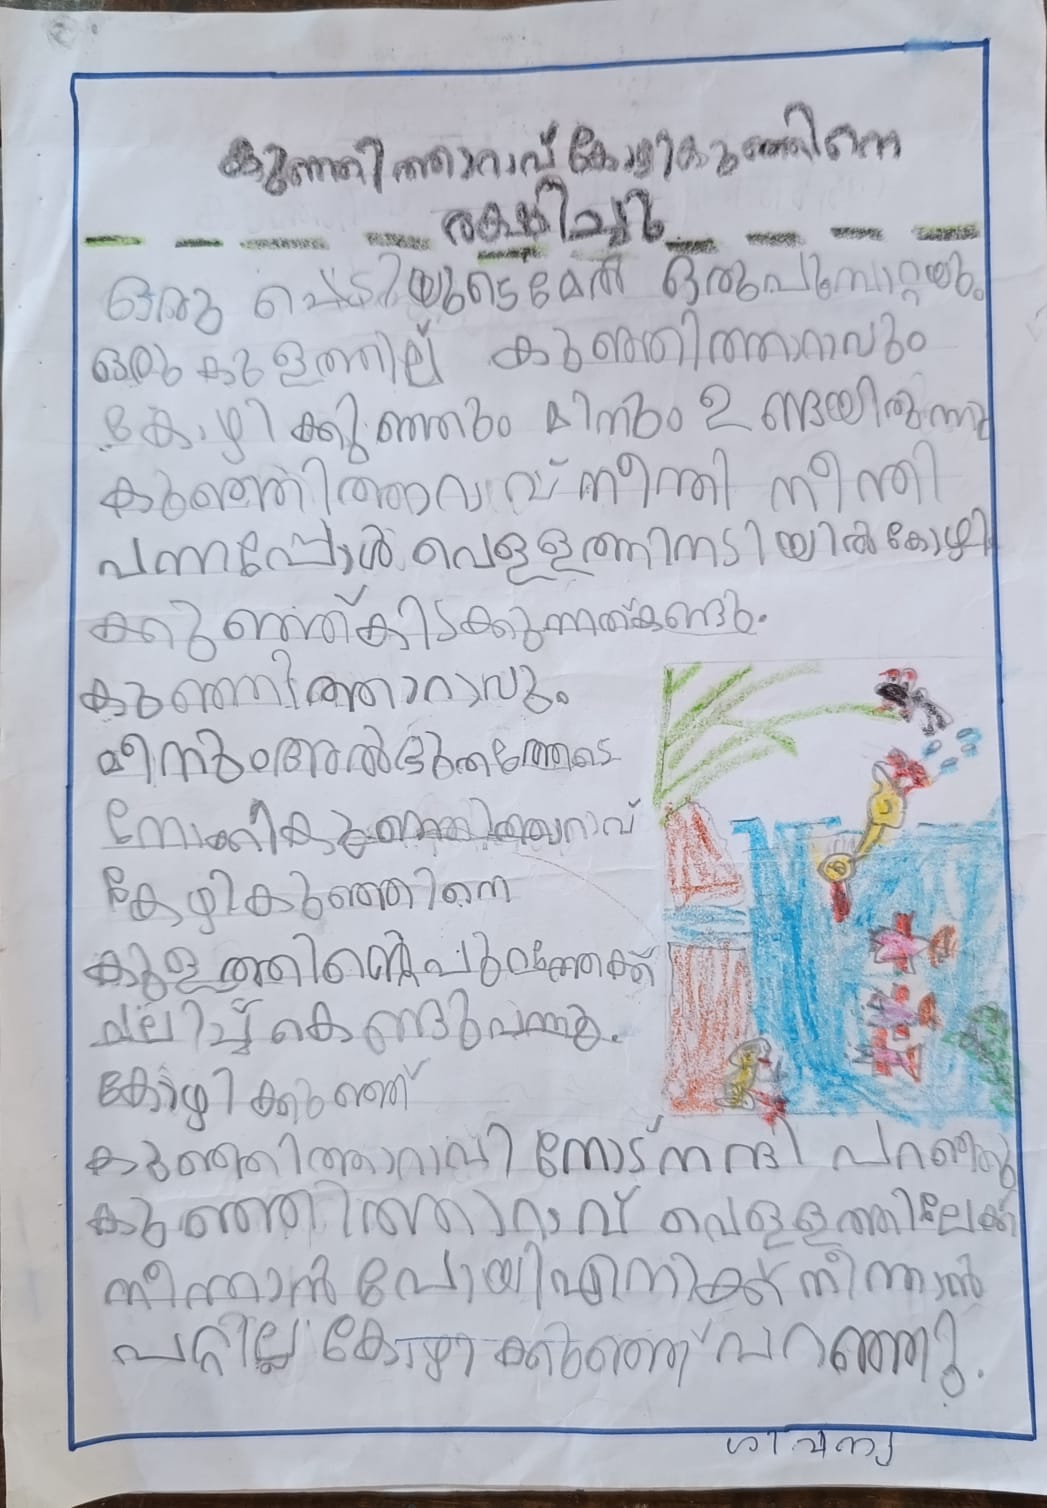 കുഞ്ഞിത്താറാവ് കോഴികുഞ്ഞിനെ
രക്ഷിച്ചു
ഒരു ചെടിയുടെമേൽ ഒരുപൂമ്പാറ്റയും
ഒരു കുളത്തില് കുഞ്ഞിത്താറാവും
കോഴിക്കുഞ്ഞും മിനും ഉണ്ടയിരുന്നു
കുഞ്ഞിത്താറാവ് നീന്തി നീന്തി
പന്നപ്പോൾ വെള്ളത്തിനടിയിൽ കോഴി
ക്കുഞ്ഞ്കിടക്കുന്നത്കണ്ടു.
കുഞ്ഞിത്താറാവും
മീനുംഅൽഭുതത്തോടെ
നോക്കികുഞ്ഞിത്താറാവ്
കേഴികുഞ്ഞിനെ
കുളത്തിന്റെപുറത്തേക്ക്
വലിച്ച് കെണ്ടുവന്നു.
കോഴിക്കുഞ്ഞ്
കുഞ്ഞിത്താറാവിനോട് നന്ദി പറഞ്ഞു
കുഞ്ഞിത്താറാവ് വെള്ളത്തിലേക്ക്
നീന്താൻ പോയിഎനിക്ക് നീന്താൻ
പറ്റില്ല കോഴിക്കുഞ്ഞ് പറഞ്ഞു.
ശിവന്യ